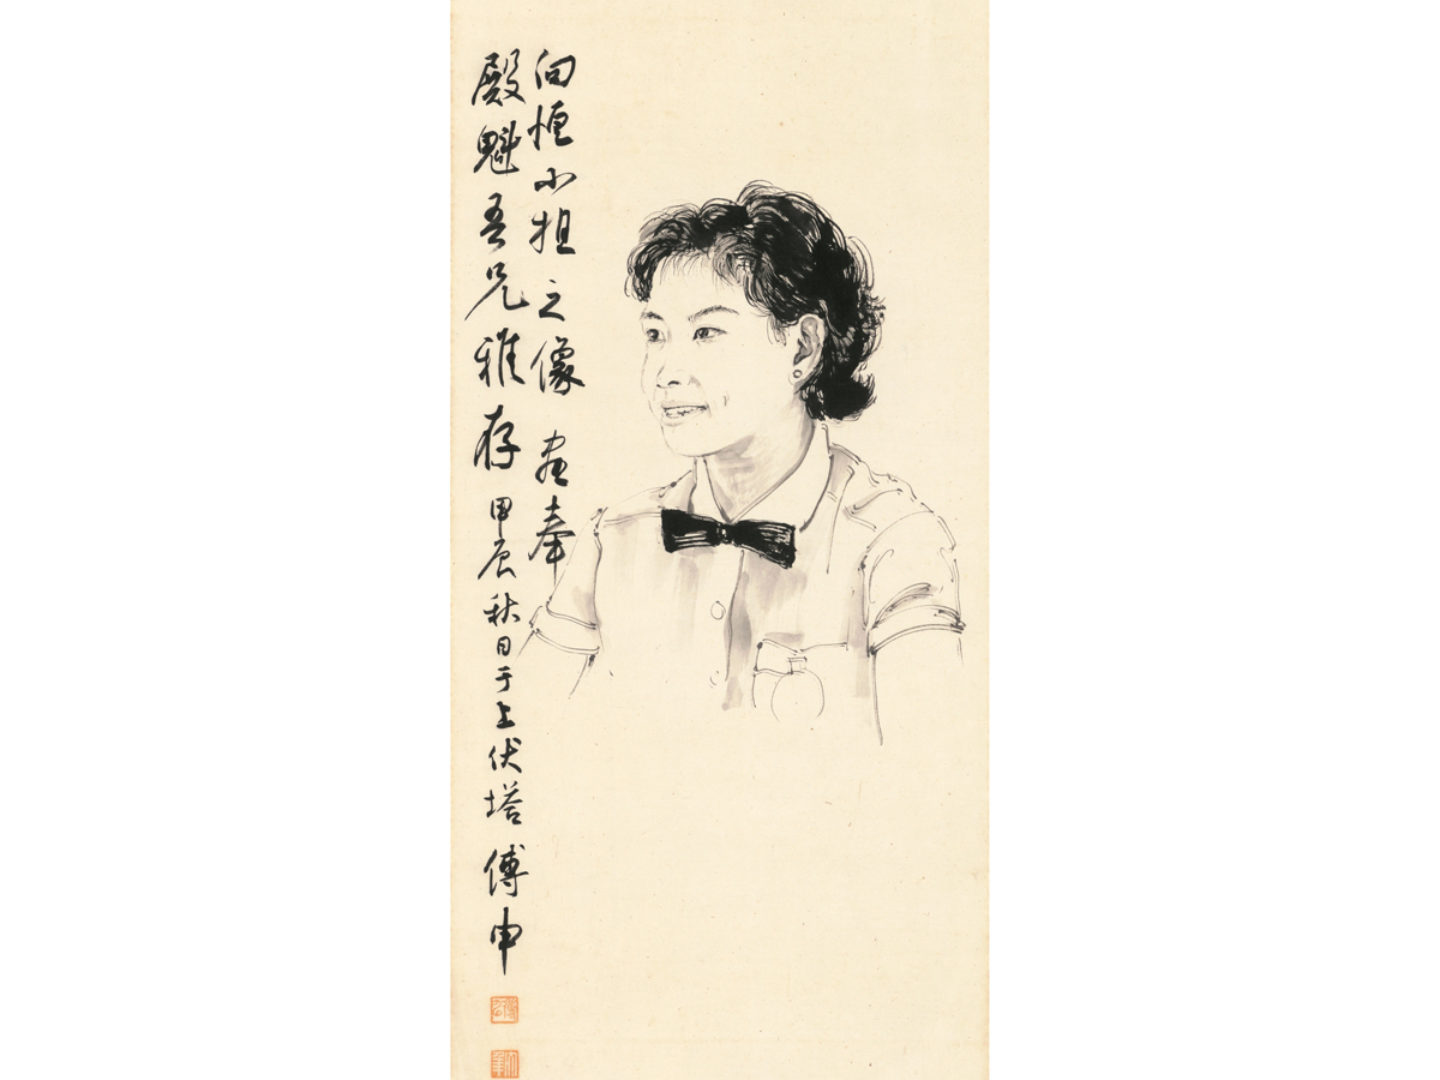 向恒小姐之像 畫奉
殿魁吾兄雅存 甲辰秋日于上伏塔 傅申